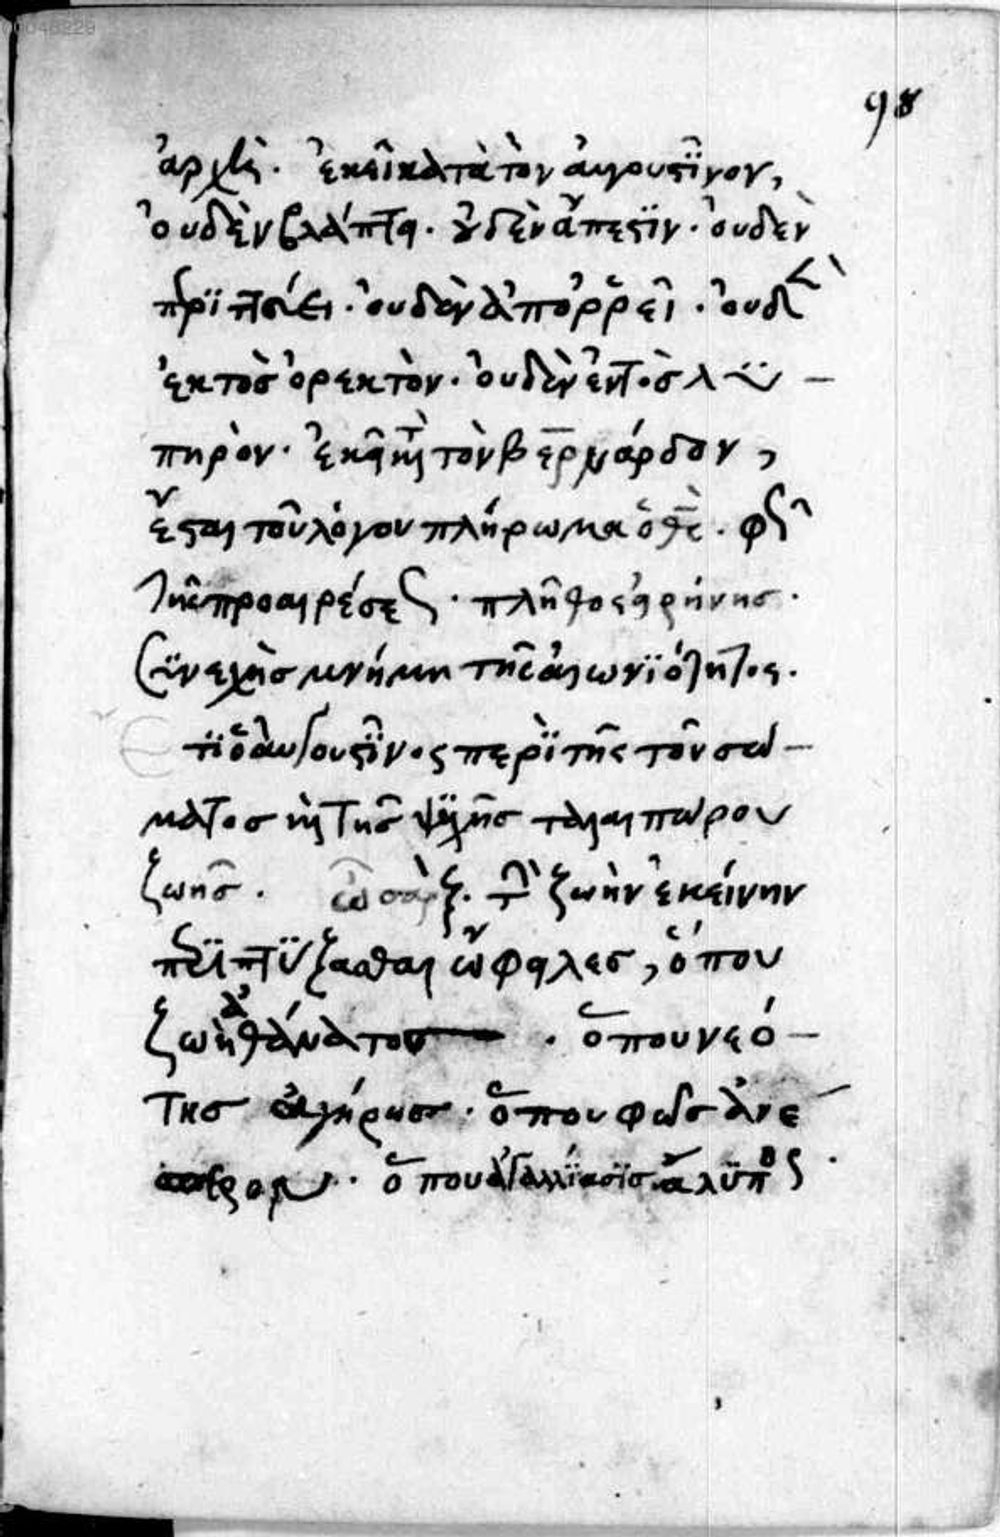 98
ἀρχὴ. ἐκεῖ κατὰ τὸν ἀυγουστῖνον,
ὀυδὲν βλάπτει. ὀυδὲν ἄπεστϊν. ὀυδὲν
ὀυδὲν ἀπορρεῖ. ὀυδὲν
ἐκτὸσ ὀρεκτὸν. ὀυδὲν ἐντὸσ λϋ –
πηρὸν. ἐκεῖ κατὰ τὸν βερνάρδον,
ἔσται τοῦ λόγου πλήρωμα ὁ θεὸς. φῶς
τῆς προαιρέσεως. πλῆθος εἰρήνης.
Συνεχὴσ μνήμη τῆς αἰωνϊότητος.
τϊ ὁ ἀυγουστῖνος περὶ τῆς τοῦ σώ –
ματος καὶ τῆσ ψυχῆσ ταλαιπώρου
ζωῆσ. ὦ σὰρξ. τὴν ζωὴν ἐκείνην
περιπτύξασθαι ὤφειλες, ὅπου
ζωὴ ἀθάνατος. ὅπου νεό –
της ἀγήρως. ὅπου φῶς ἀνέ
σπερον. ὅπου ἀγαλλϊασϊσ ἄλϋπος.